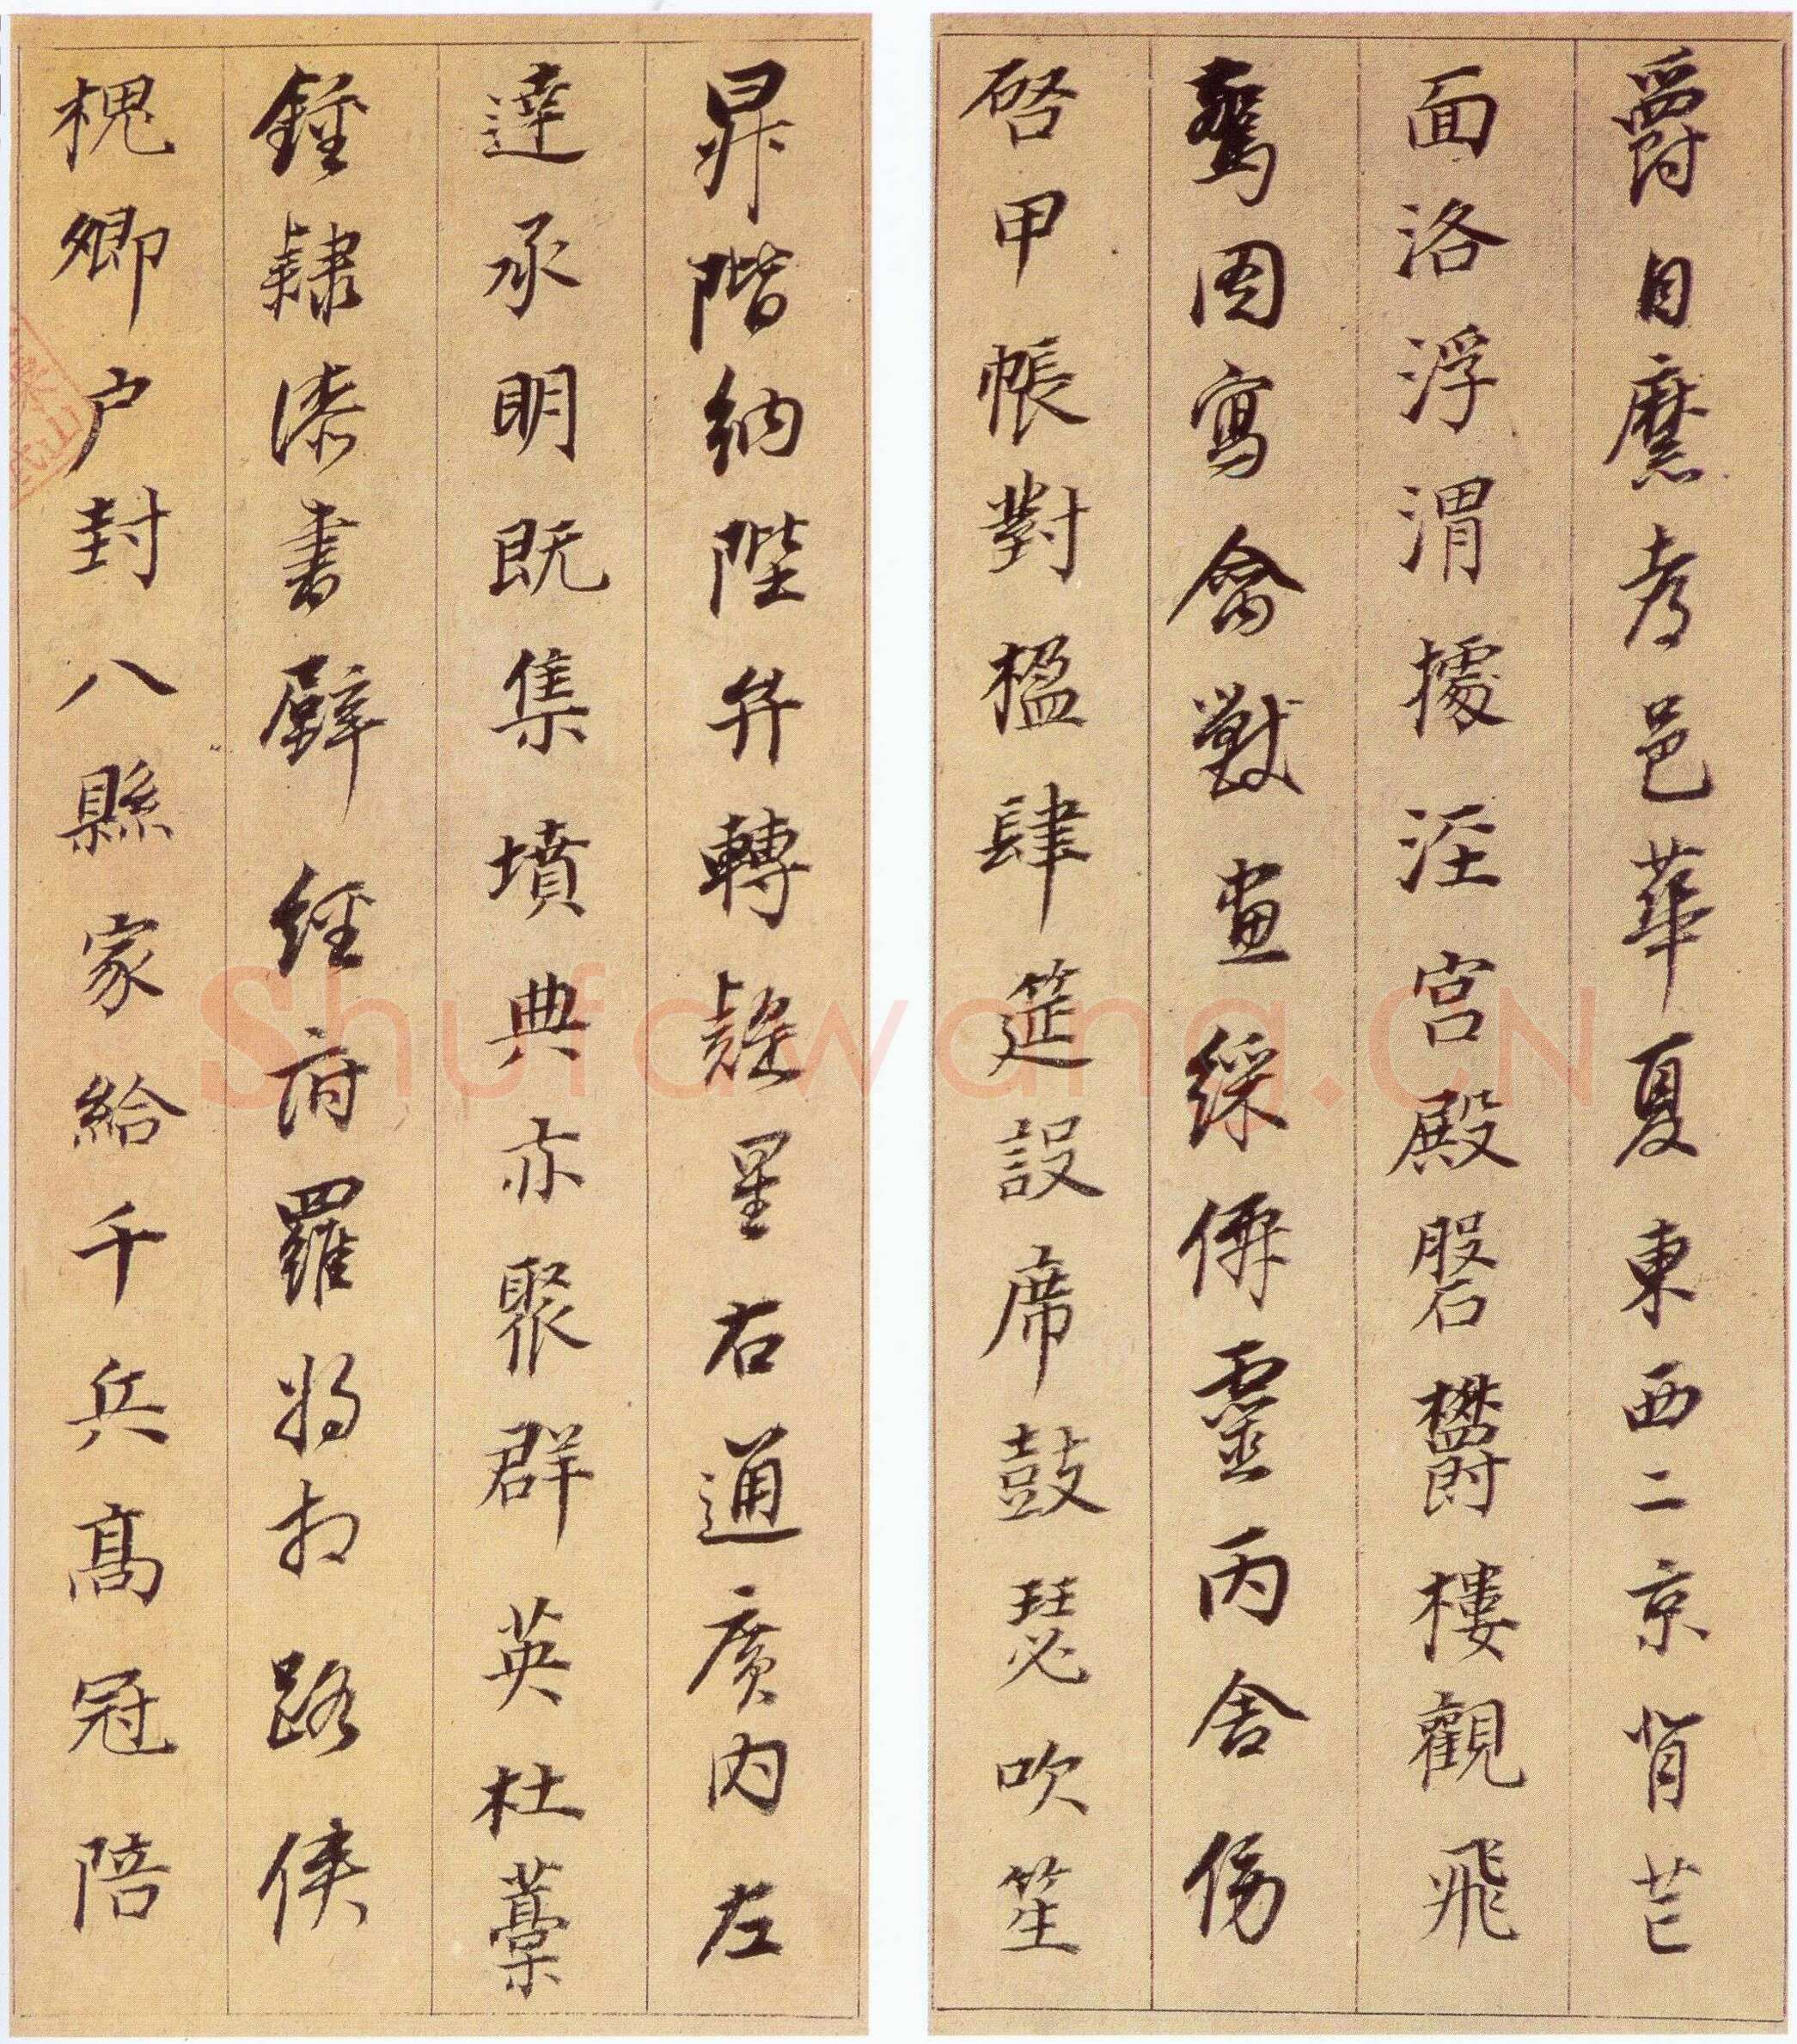 爵自縻孝邑華夏東西二京背芒
面洛浮渭據涇宮殿磐欝樓觀飛
驚圖寫禽獸畫綵僊靈丙舍傍
啓甲帳對楹肆筵設席鼓瑟吹笙
昇階納陛弁轉疑星右通廣內左
達承明既集墳典亦聚群英杜藁
鍾隸漆書壁經府羅將相路俠
槐卿户封八縣家給千兵高冠陪
Shufawang.CN